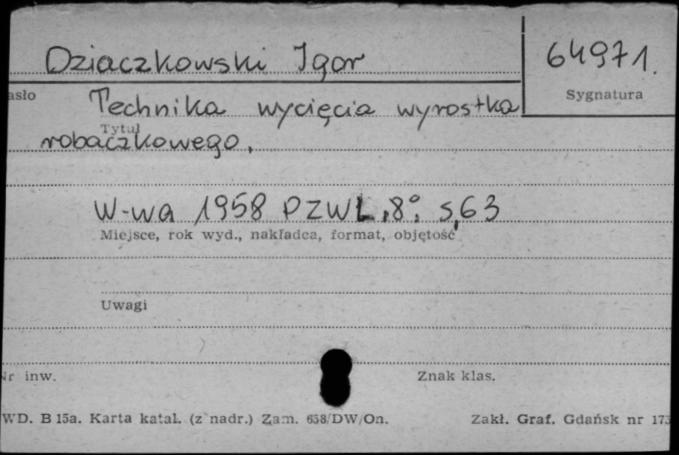 Dziaczkowski Igor
64971.
asło
Sygnatura
Technika wycięcia wyrostka
Tytuł
robaczkowego.
W-wa 1958 PZWL, 8°. s, 63
Miejsce, rok wyd., nakładca, format, objętość
Uwagi
Nr inw.
Znak klas.
WD. B 15a. Karta katal. (z nadr.) Zam. 658/DW/On.
Zakł. Graf. Gdańsk nr 173